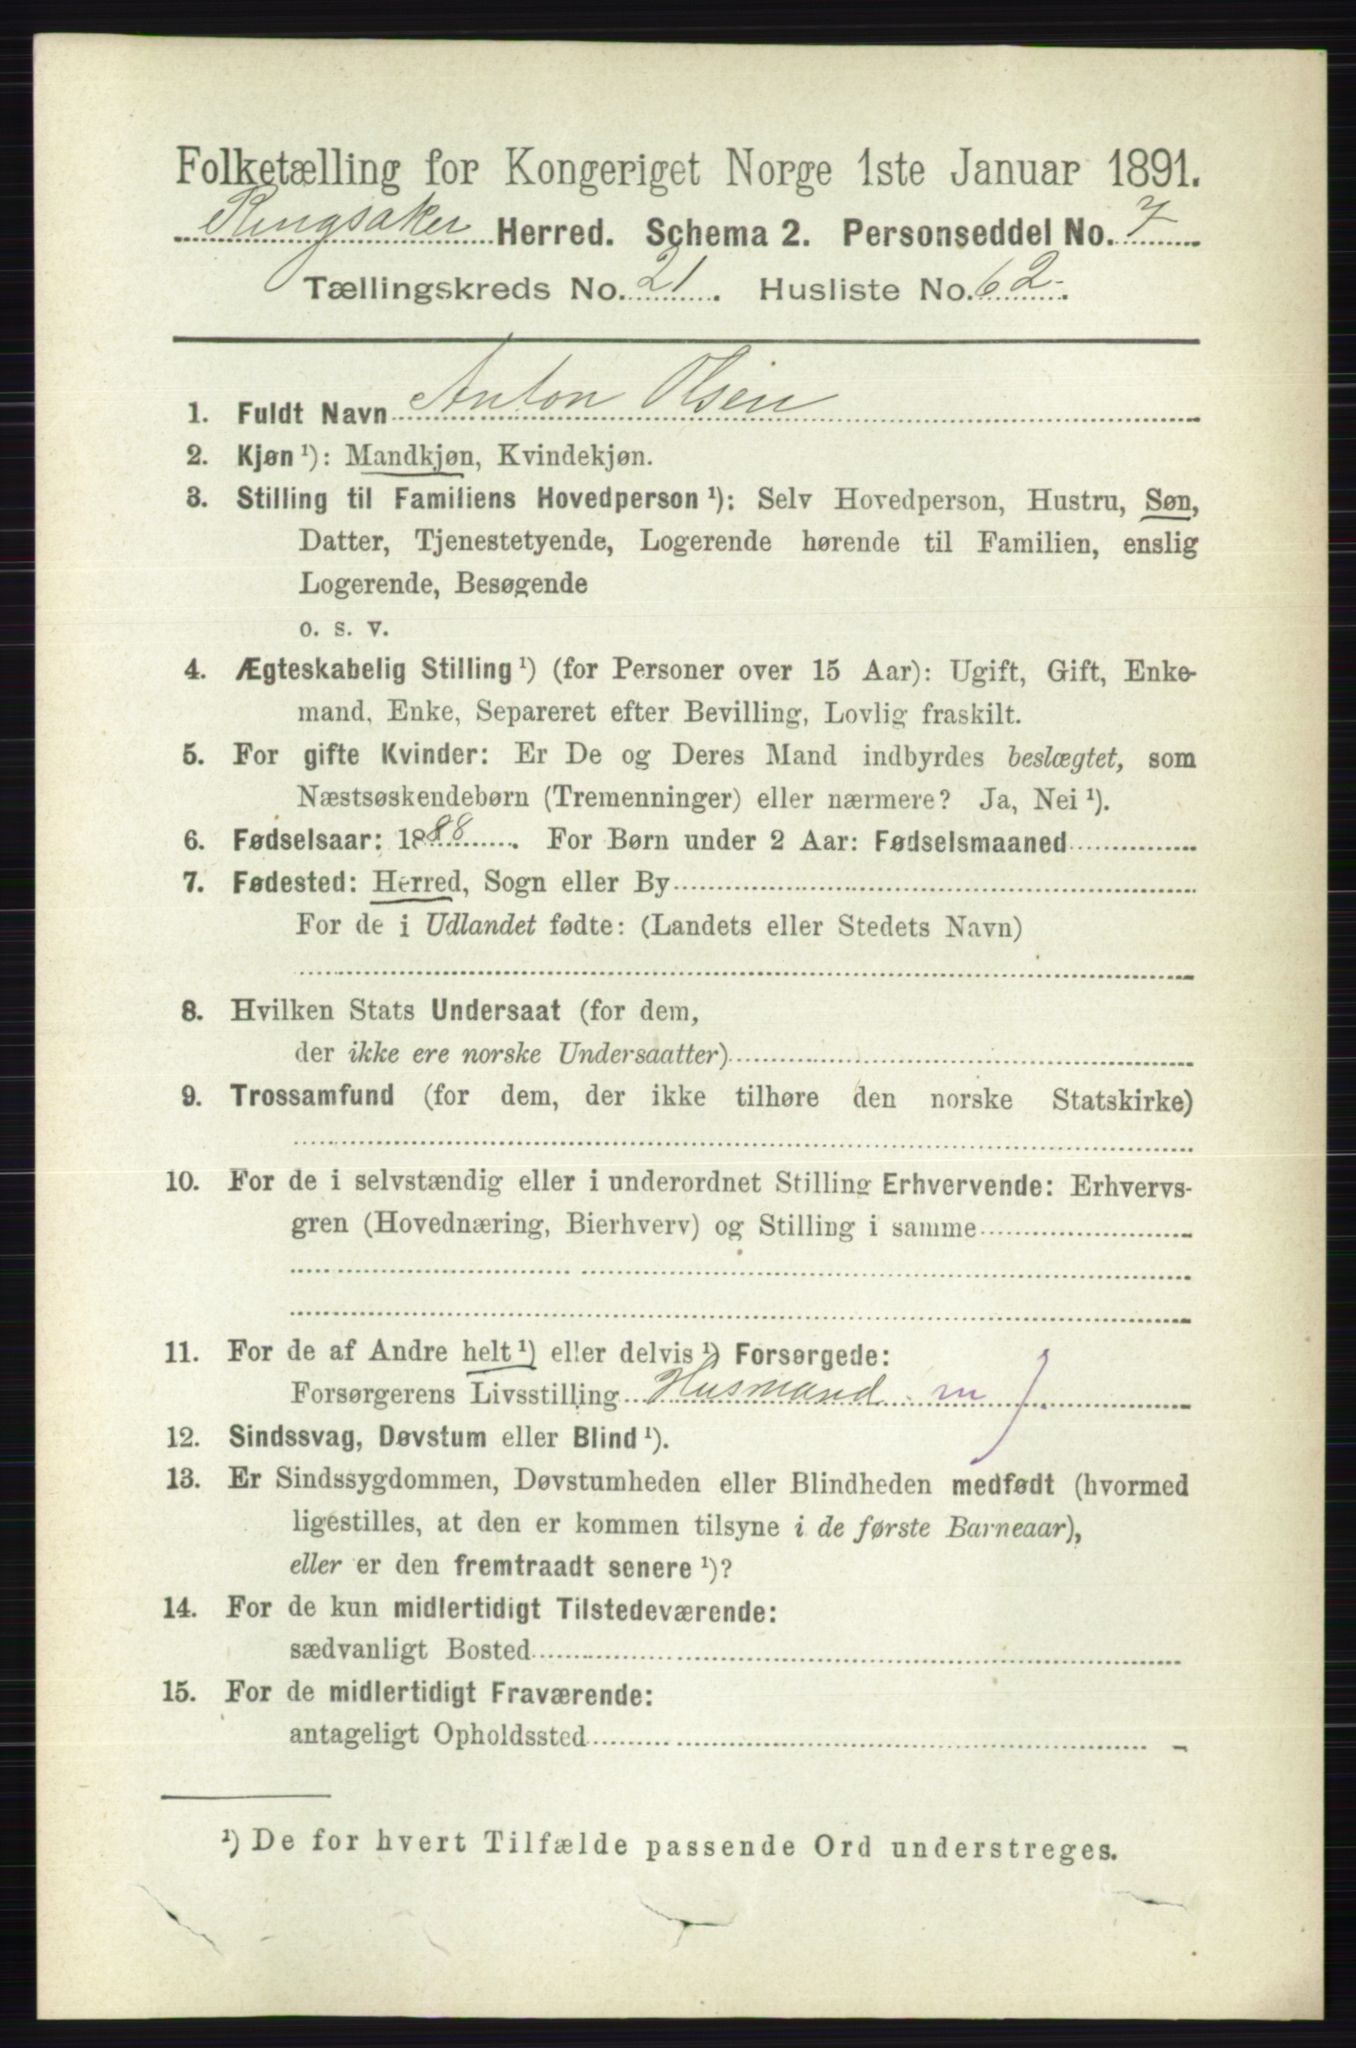 Folketælling for Kongeriget Norge 1ste Januar 1891.
Ringsaker Herred. Schema 2. Personseddel No. 7
Tællingskreds No. 21. Husliste No. 62.
1. Fuldt Navn Anton Olsen
2. Kjøn ¹): Mandkjøn, Kvindekjøn.
3. Stilling til Familiens Hovedperson ¹): Selv Hovedperson, Hustru, Søn,
Datter, Tjenestetyende, Logerende hørende til Familien, enslig
Logerende, Besøgende
o. s. v.
4. Ægteskabelig Stilling ¹) (for Personer over 15 Aar): Ugift, Gift, Enke-
mand, Enke, Separeret efter Bevilling, Lovlig fraskilt.
5. For gifte Kvinder: Er De og Deres Mand indbyrdes beslægtet, som
Næstsøskendebørn (Tremenninger) eller nærmere? Ja, Nei ¹).
6. Fødselsaar: 1888. For Børn under 2 Aar: Fødselsmaaned
7. Fødested: Herred, Sogn eller By
For de i Udlandet fødte: (Landets eller Stedets Navn)
8. Hvilken Stats Undersaat (for dem,
der ikke ere norske Undersaatter)
9. Trossamfund (for dem, der ikke tilhøre den norske Statskirke)
10. For de i selvstændig eller i underordnet Stilling Erhvervende: Erhvervs-
gren (Hovednæring, Bierhverv) og Stilling i samme
11. For de af Andre helt ¹) eller delvis ¹) Forsørgede:
Forsørgerens Livsstilling Husmand m J.
12. Sindssvag, Døvstum eller Blind ¹).
13. Er Sindssygdommen, Døvstumheden eller Blindheden medfødt (hvormed
ligestilles, at den er kommen tilsyne i de første Barneaar),
eller er den fremtraadt senere ¹)?
14. For de kun midlertidigt Tilstedeværende:
sædvanligt Bosted
15. For de midlertidigt Fraværende:
antageligt Opholdssted
¹) De for hvert Tilfælde passende Ord understreges.